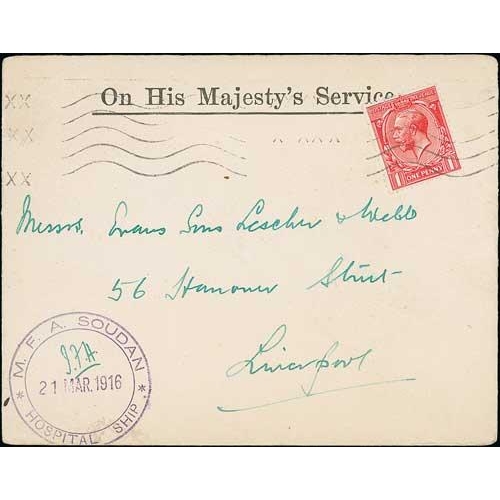 On His Majesty's Service
XX
XX
XX
X XXX
1 ONE PENNY 1
Messrs. Evans Sons Lescher & Webb
56 Hanover Street
Liverpool
M. F. A. SOUDAN
21 MAR. 1916
* HOSPITAL SHIP *